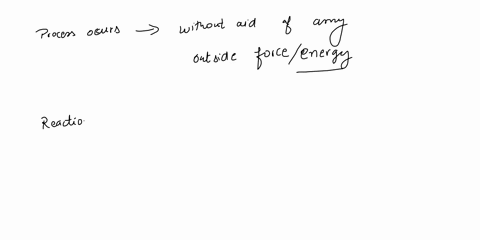 Process occurs → without aid of any
outside force/energy
Reactio